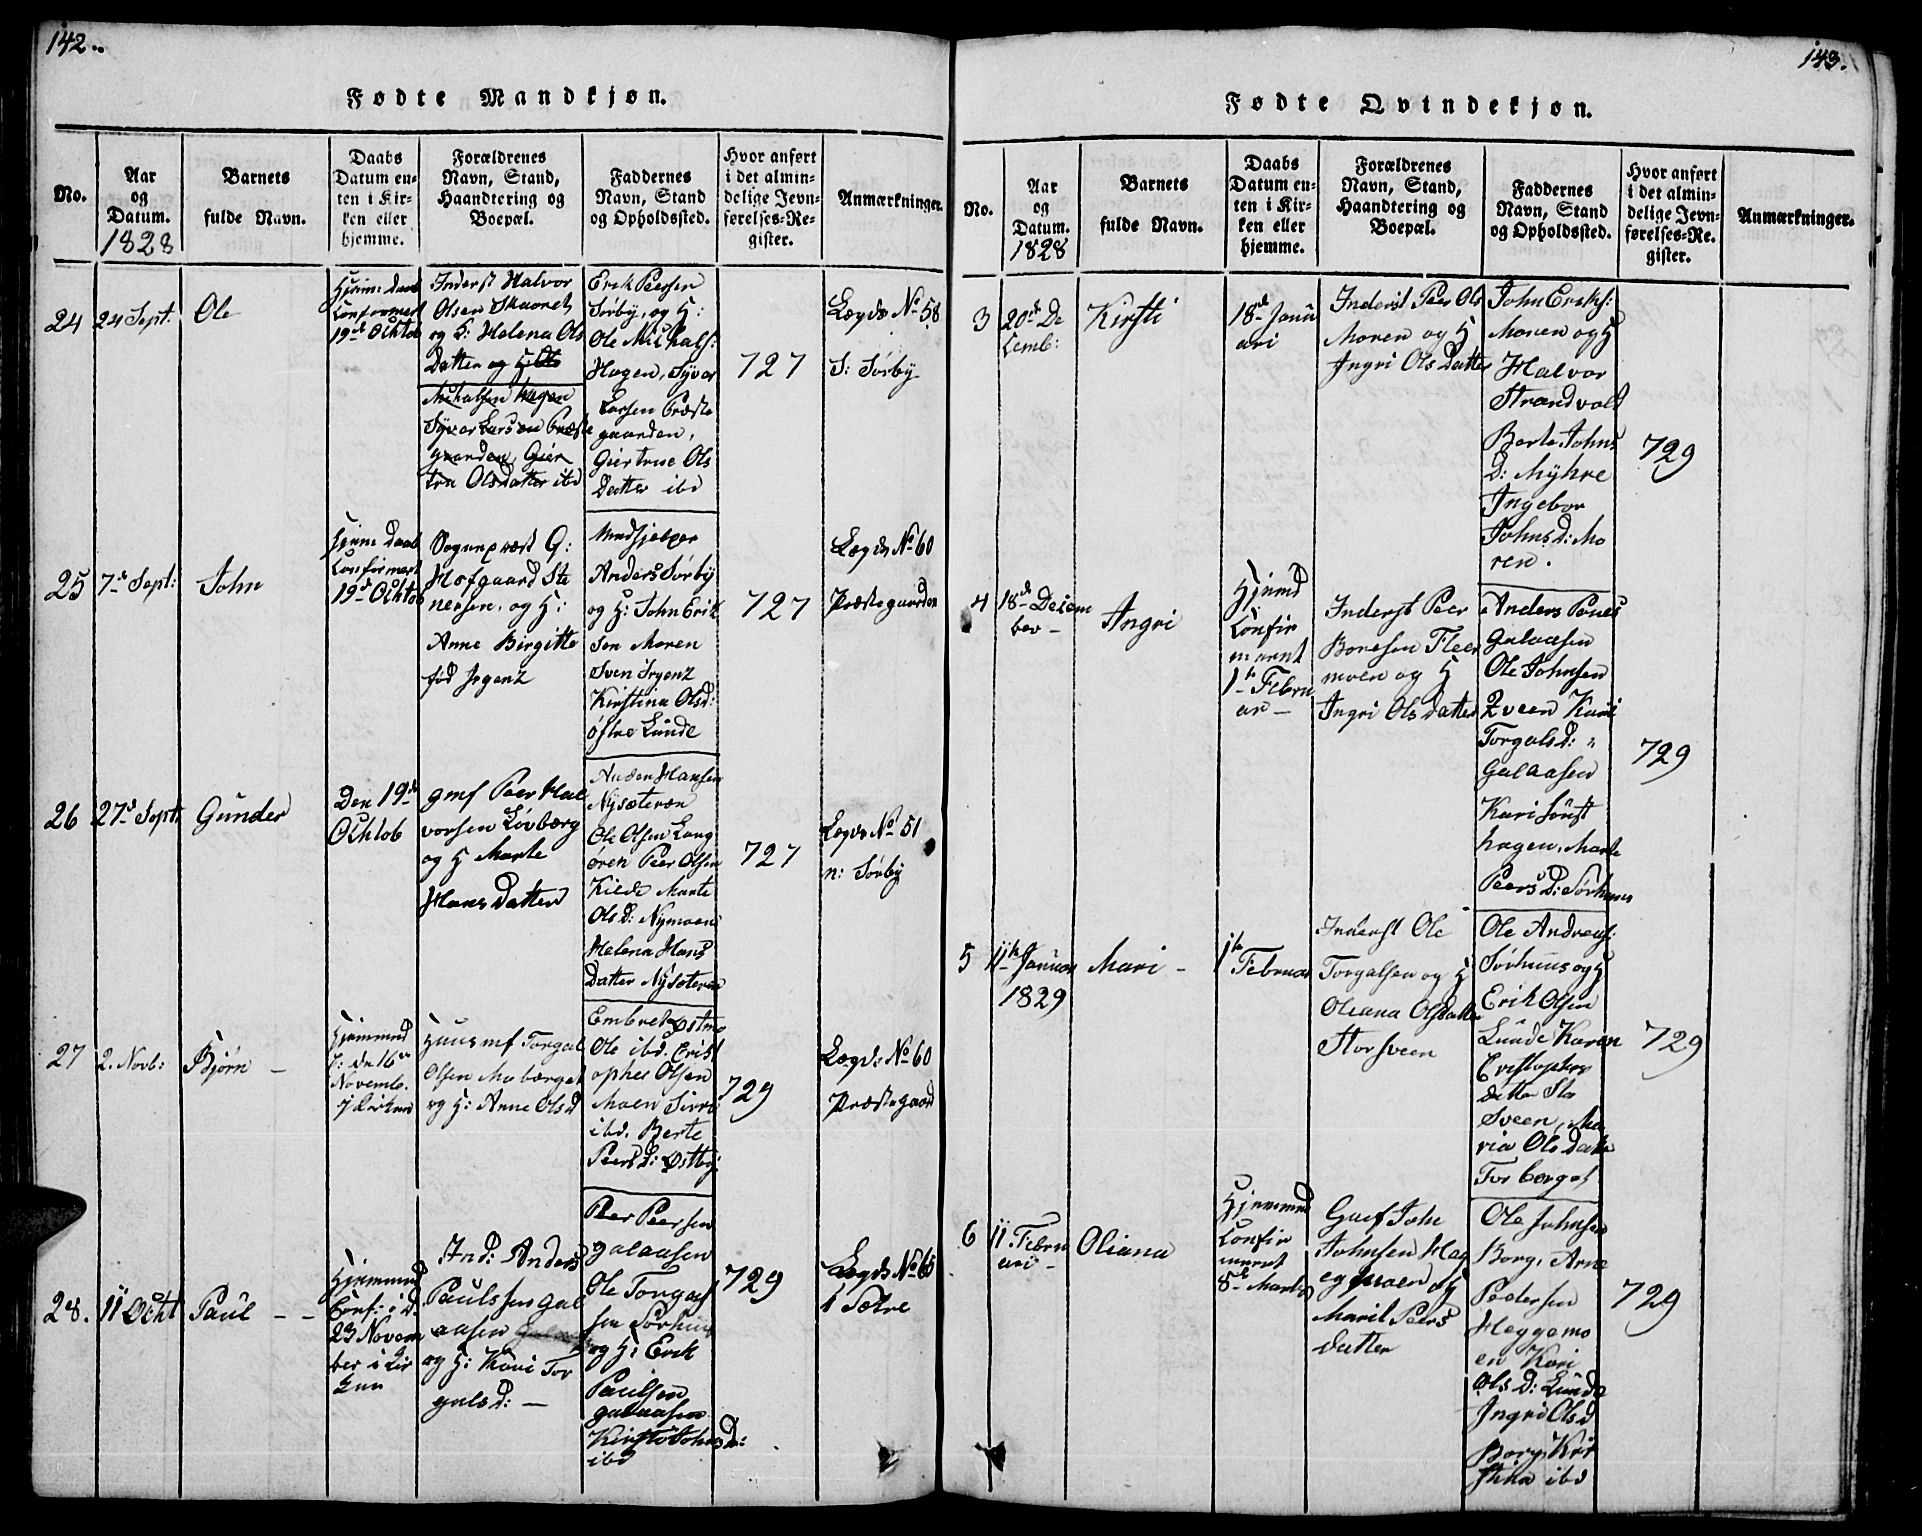 142.
Fødte Mandkjøn.
No.
Aar
og
Datum.
1828
Barnets
fulde Navn.
Daabs
Datum en-
ten i Kir-
ken eller
hjemme.
Forældrenes
Navn, Stand,
Haandtering og
Boepæl.
Faddernes
Navn, Stand
og Opholdssted.
Hvor anført
i det almin-
delige Jevn-
førelses-Re-
gister.
Anmærkninger.
24
24 Sept:
Ole
Hjemme daab
Confirmert
19de Ochtob
Inderst Halvor
Olsen Skaaret
og H: Helena Ols
Datter og H: Ole
Michalsen Hagen
Syver Larsen Præste
gaarden, Gier
tru Olsdatter ibd
Erik Peersen
Sørby, og H:
Ole Michals:
Hagen, Syver
Larsen Præste
gaarden,
Giertrue Ols
Datter ibd
727
Lægds No 58
S: Sørby
25
7de Sept:
John
Hjemme Daab
Confirmert
19de Ochtob
Sogneprest G:
Hofgaard Ste
nersen, og H:
Anne Birgitte
fød Irgenz
Medhjelper
Anders Sørby
og H: John Erik
sen Moren
Sven Irgenz
Kirstina Olsd:
østre Lunde
727
Lægds No 60
Præstegaarden
26
27de Sept.
Gunder
Den 19de
Ochtob
gmf Peer Hal
vorsen Løvberg
og H Marte
Hansdatter
Anden Hansen
Nysæteren
Ole Olsen Lang
øren Peer Olsen
Kilde Marte
Olsd: Nymoen
Helena Hans
Datter Nysæteren
727
Lægds No 51
n: Sørby
27
2. Novb:
Bjørn –
Hjemmed
d: 16de
Novemb.
i Kirken
Huusmf Torgal
Olsen Moberget
og H: Anne Olsd
Embret Østmo
Ole ibd. Crist
opher Olsen
Moen Sirri
ibd. Berte
Peersd: Østby
729
Lægd: No 60
Præstegaard
28.
11 Ocht
Paul – –
Hjemmed
Conf: i d.
23 Novem
ber i Kir
ken
Ind: Anders
Paulssen Gal
aasen
og H: Kari Tor
galsd: –
Peer Peersen
galaasen
Ole Torgal
sen Sørhuus
og H: Erik
Paulsen
galaasen
Kirsti Johnsd:
ibd
729
Lægds No 65
i Sætre
143.
Fødte Qvindekjøn.
No.
Aar
og
Datum.
1828
Barnets
fulde Navn.
Daabs
Datum en-
ten i Kir-
ken eller
hjemme.
Forældrenes
Navn, Stand,
Haandtering og
Boepæl.
Faddernes
Navn, Stand
og Opholdssted.
Hvor anført
i det almin-
delige Jevn-
førelses-Re-
gister.
Anmærkninger.
3
20de De
cemb:
Kirsti
18de Janu
ari
Inderst Peer Ols
Moren og H
Ingri Olsdatter
John Eriks:
Moren og H
Halvor
Strandvold
Berte Johns
D: Myhre
Ingebor
Johnsd: Mo
ren.
729
4
18de Decem
ber –
Ingri
Hjemmd
Confir
mernt
1te Febru
ar –
Inderst Peer
Boresen Fleer
moen og H
Ingri Olsdatter
Anders Pouls
Galaasen
Ole Johnsen
Zveen Kari
Torgalsd: „
Galaasen
Kari
hagen, Marte
Peersd: Sørhuus
729
5
11te Januar
1829
Mari –
1te
Februar
Inderst Ole
Torgalsen og H
Oliana Olsdatter
Storsveen
Ole Andreas:
Sørhuus og H
Erik Olsen
Lunde Karen
Cristopher
datter Stor
Sveen, Ma
ria Olsdatter
Torberget
729
6
11. Febru
ari –
Oliana
Hjemmed
Confir
mernt
8de Martz
Gmf John
Johnsen Hag
eggmoen og H
Marit Peers
datter
Ole Johnsen
Borg, Arne
Pedersen
Heggemo
en Kari
Olsd: Lunde
Ingri Olsd
Borg, Kir
stina ibd
729